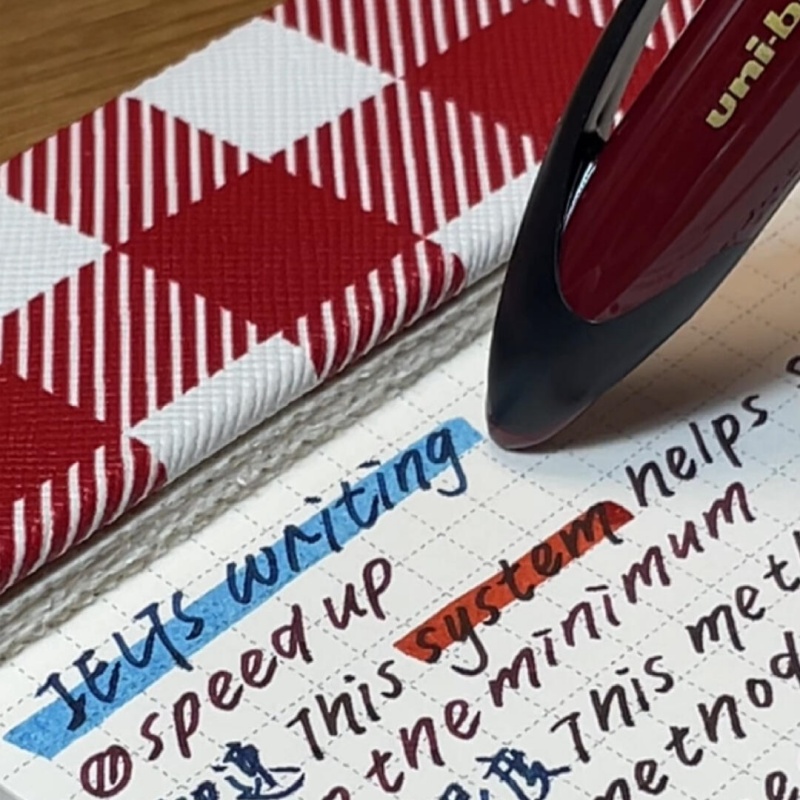 uni-b
IELTS writing
⑪ speed up
This system helps
the minimum
速 This meth
度 method